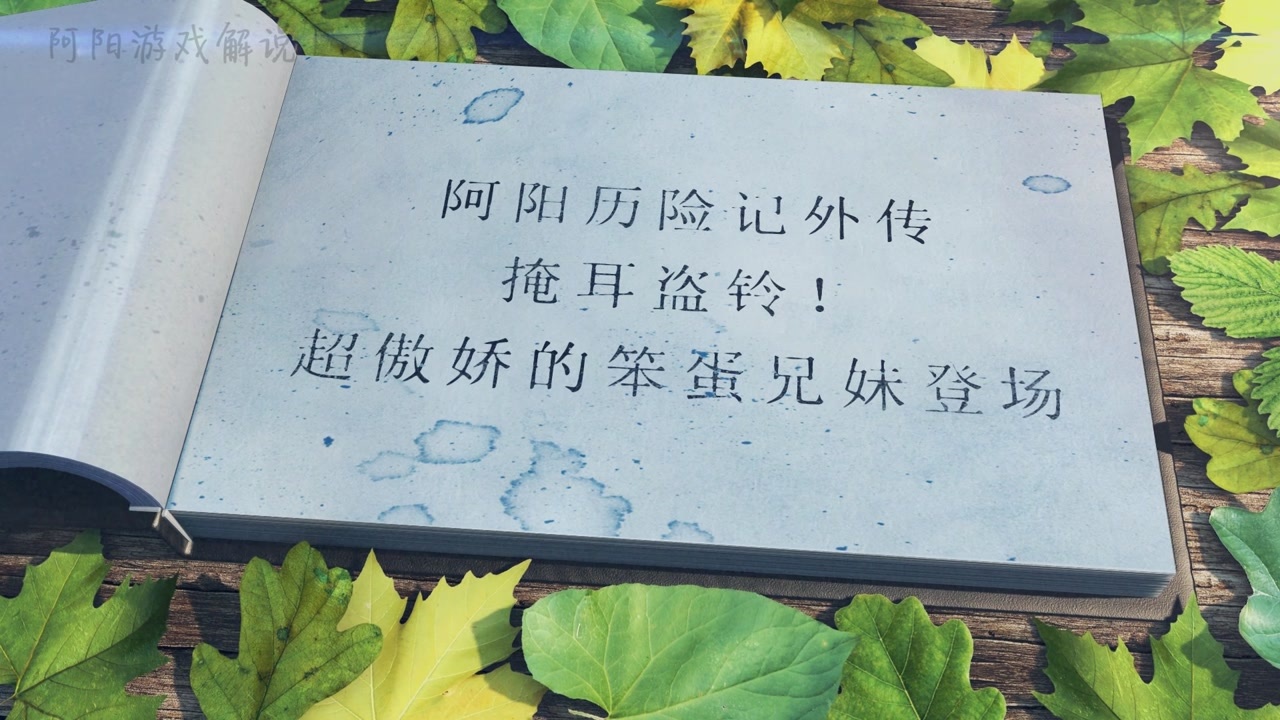 阿阳游戏解说
阿阳历险记外传
掩耳盗铃！
超傲娇的笨蛋兄妹登场